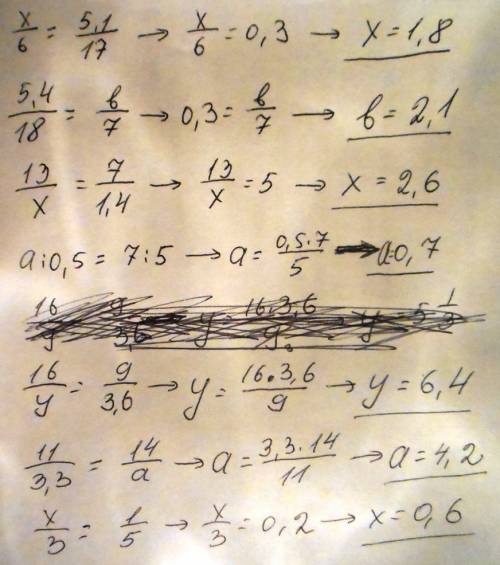 x/6 = 5,1/17 → x/6 = 0,3 → x = 1,8
5,4/18 = в/7 → 0,3 = в/7 → в = 2,1
13/x = 7/1,4 → 13/x = 5 → x = 2,6
a : 0,5 = 7 : 5 → a = 0,5·7/5 → a=0,7
16/y = 9/3,6 → y = 16·3,6/9 → y = 6,4
11/3,3 = 14/a → a = 3,3·14/11 → a = 4,2
x/3 = 1/5 → x/3 = 0,2 → x = 0,6